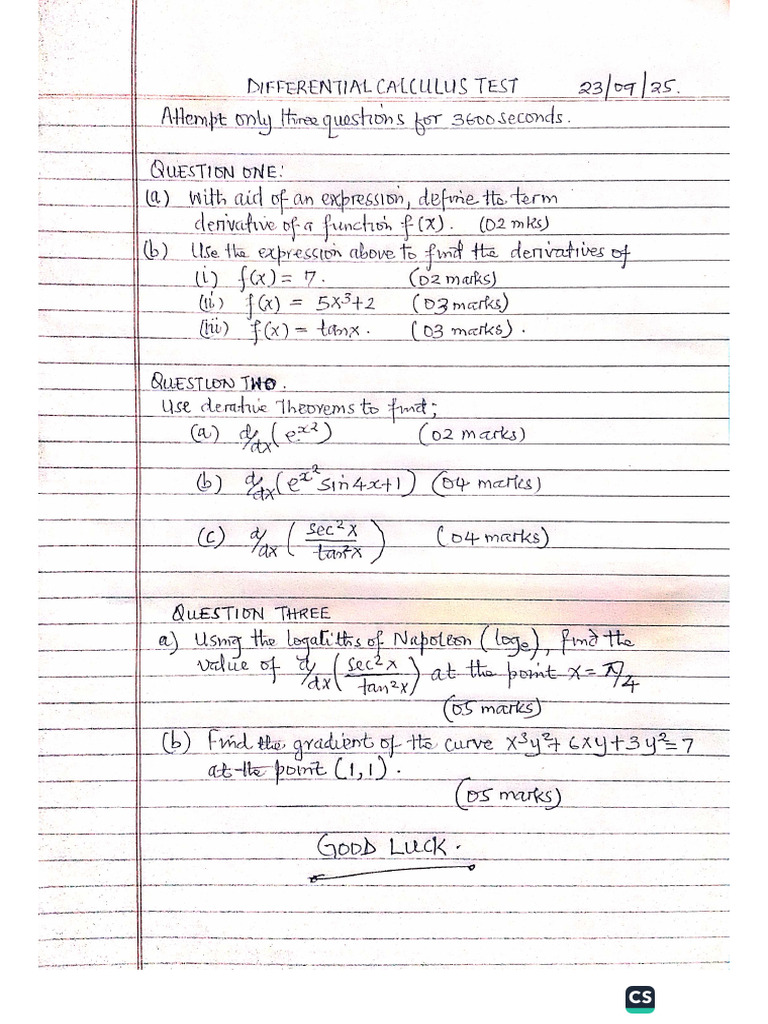 DIFFERENTIAL CALCULUS TEST 23/09/25.
Attempt only three questions for 3600 seconds.
QUESTION ONE:
(a) With aid of an expression, define the term
derivative of a function f(x). (02 mks)
(b) Use the expression above to find the derivatives of
(i) f(x) = 7. (02 marks)
(ii) f(x) = 5x³+2 (03 marks)
(iii) f(x) = tanx. (03 marks).
QUESTION TWO.
Use derative Theorems to find;
(a) d/dx (e^x²) (02 marks)
(b) d/dx (e^x² sin4x+1) (04 marks)
(c) d/dx (sec²x / tan²x) (04 marks)
QUESTION THREE
a) Using the logatiths of Napoleon (logₑ), find the
value of d/dx (sec²x / tan²x) at the point x = π/4
(05 marks)
(b) Find the gradient of the curve x³y²+6xy+3y²=7
at the point (1,1).
(05 marks)
GOOD LUCK.
CS